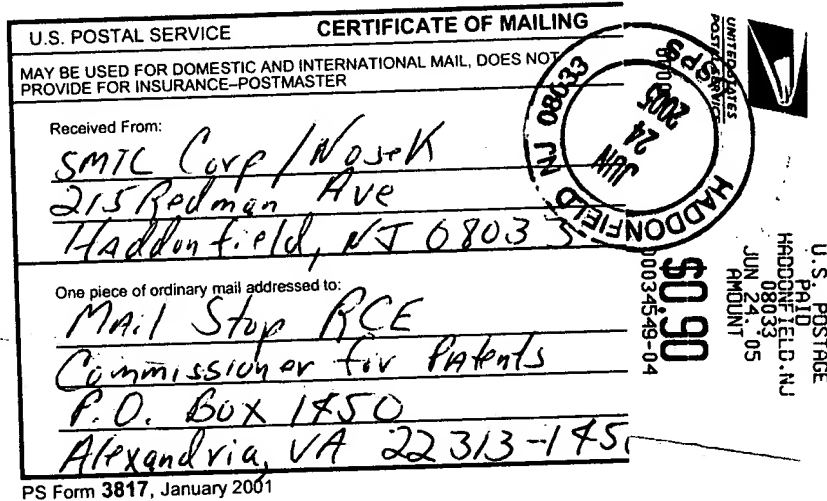 U.S. POSTAL SERVICE CERTIFICATE OF MAILING
MAY BE USED FOR DOMESTIC AND INTERNATIONAL MAIL, DOES NOT
PROVIDE FOR INSURANCE–POSTMASTER
Received From:
SMTC Corp / Nosek
215 Redman Ave
Haddonfield, NJ 0803
One piece of ordinary mail addressed to:
Mail Stop RCE
Commissioner for Patents
P.O. Box 1450
Alexandria, VA 22313-145
PS Form 3817, January 2001
HADDONFIELD NJ 08033
USPS
JUN
24
2005
UNITED STATES
POSTAL SERVICE
U.S. POSTAGE
PAID
HADDONFIELD,NJ
08033
JUN 24, 05
AMOUNT
$0.90
00034549-04